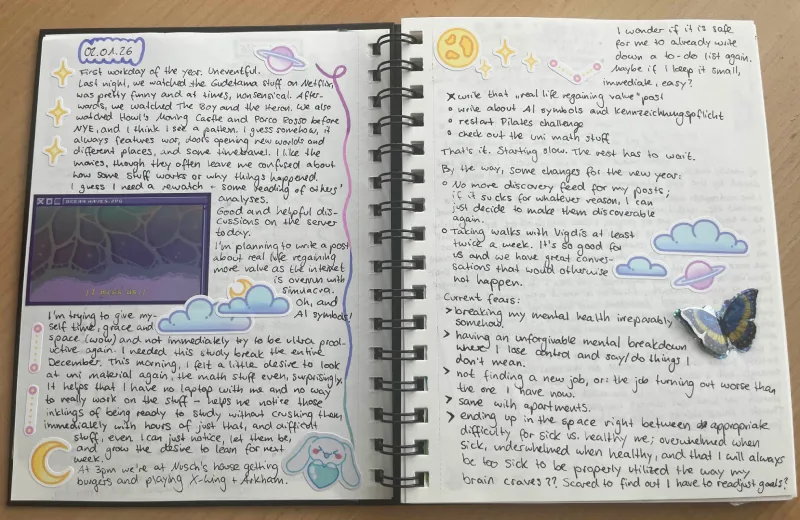 02.01.26
First workday of the year. Uneventful.
Last night, we watched the Gudetama stuff on Netflix,
was pretty funny and at times, nonsensical. After-
wards, we watched The Boy and the Heron. We also
watched Howl's Moving Castle and Porco Rosso before
NYE, and I think I see a pattern. I guess somehow, it
always features war, doors opening new worlds and
different places, and some timetravel. I like the
movies, though they often leave me confused about
how some stuff works or why things happened.
I guess I need a rewatch + some reading of others'
analyses.
Good and helpful dis-
cussions on the server
today.
I'm planning to write a post
about real life regaining
more value as the internet
is overrun with
simulacra.
Oh, and
AI symbols!
I'm trying to give my-
self time, grace and
space (wow) and not immediately try to be ultra prod-
uctive again. I needed this study break the entire
December. This morning, I felt a little desire to look
at uni material again, the math stuff even, surprisingly.
It helps that I have no laptop with me and no way
to really work on the stuff - helps me notice those
inklings of being ready to study without crushing them
immediately with hours of just that, and difficult
stuff, even. I can just notice, let them be,
and grow the desire to learn for next
week.
At 3pm we're at house getting
burgers and playing X-Wing + Arkham.
I wonder if it is safe
for me to already write
down a to-do list again.
Maybe if I keep it small,
immediate, easy?
x write that "real life regaining value" post
o write about AI symbols and Kennzeichnungspflicht
o restart Pilates challenge
o check out the uni math stuff
That's it. Starting slow. The rest has to wait.
By the way, some changes for the new year:
o No more discovery feed for my posts;
if it sucks for whatever reason, I can
just decide to make them discoverable
again.
o Taking walks with Vigdis at least
twice a week. It's so good for
us and we have great conver-
sations that would otherwise
not happen.
Current fears:
> breaking my mental health irreparably
somehow.
> having an unforgivable mental breakdown
where I lose control and say/do things I
don't mean.
> not finding a new job, or: the job turning out worse than
the one I have now.
> same with apartments.
> ending up in the space right between appropriate
difficulty for sick vs. healthy me; overwhelmed when
sick, underwhelmed when healthy, and that I will always
be too sick to be properly utilized the way my
brain craves?? Scared to find out I have to readjust goals?